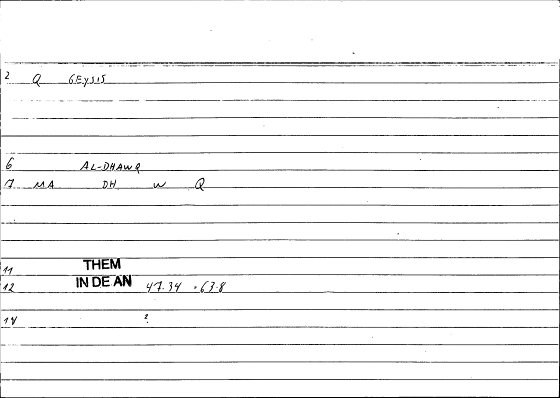 2 Q GEYSIS
6 AL-DHAWQ
7 MA DH W Q
11 THEM
12 IN DE AN 47.34 63.8
14 ?